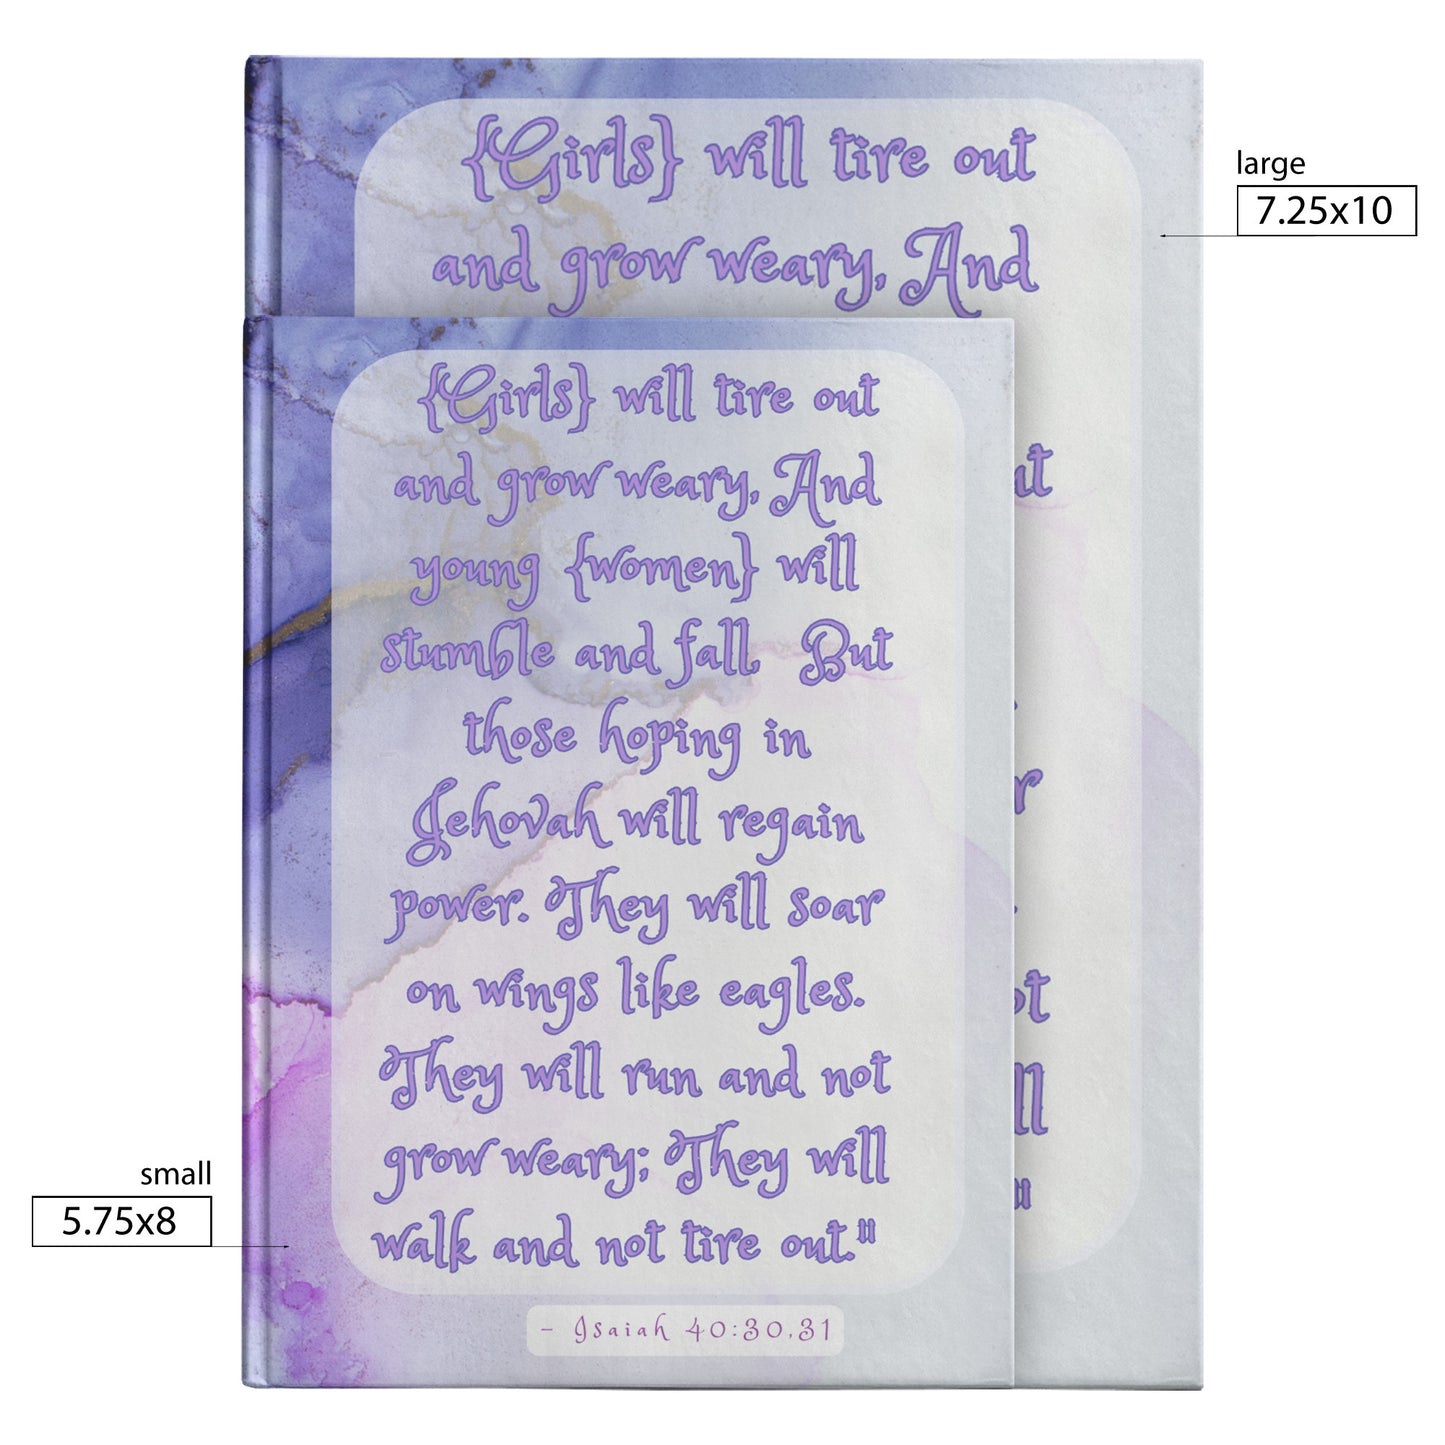 {Girls} will tire out
and grow weary, And
large
7.25x10
{Girls} will tire out
and grow weary, And
young {women} will
stumble and fall,  But
those hoping in
Jehovah will regain
power. They will soar
on wings like eagles.
They will run and not
grow weary; They will
walk and not tire out."
- Isaiah 40:30,31
small
5.75x8